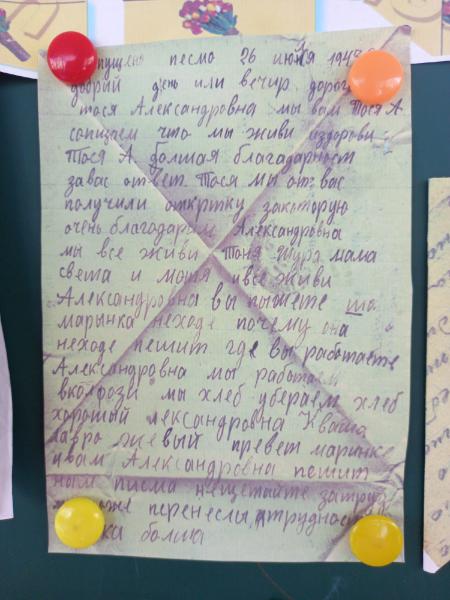 пущено песмо 26 июня 194
добрий день или вечир дорог
тося Александровна мы вам Тося А
сопщаем что мы живи издорови
Тося А. болшая благадарност
завас ответ. Тося мы от вас
получили открткку закоторую
очень благодарим Александровна
мы все живи Тоня Шура мама
света и мотя ивсе живи
Александровна вы пышете што
марынка неходе почему она
неходе пешит где вы работаете
Александровна мы работаем
вколфози мы хлеб убераем хлеб
хороший лександровна Кваша
лавро живый превет маринке
ивам Александровна пешит
ном писма нещетайте затруд
може перенеслы трудност
ка болша